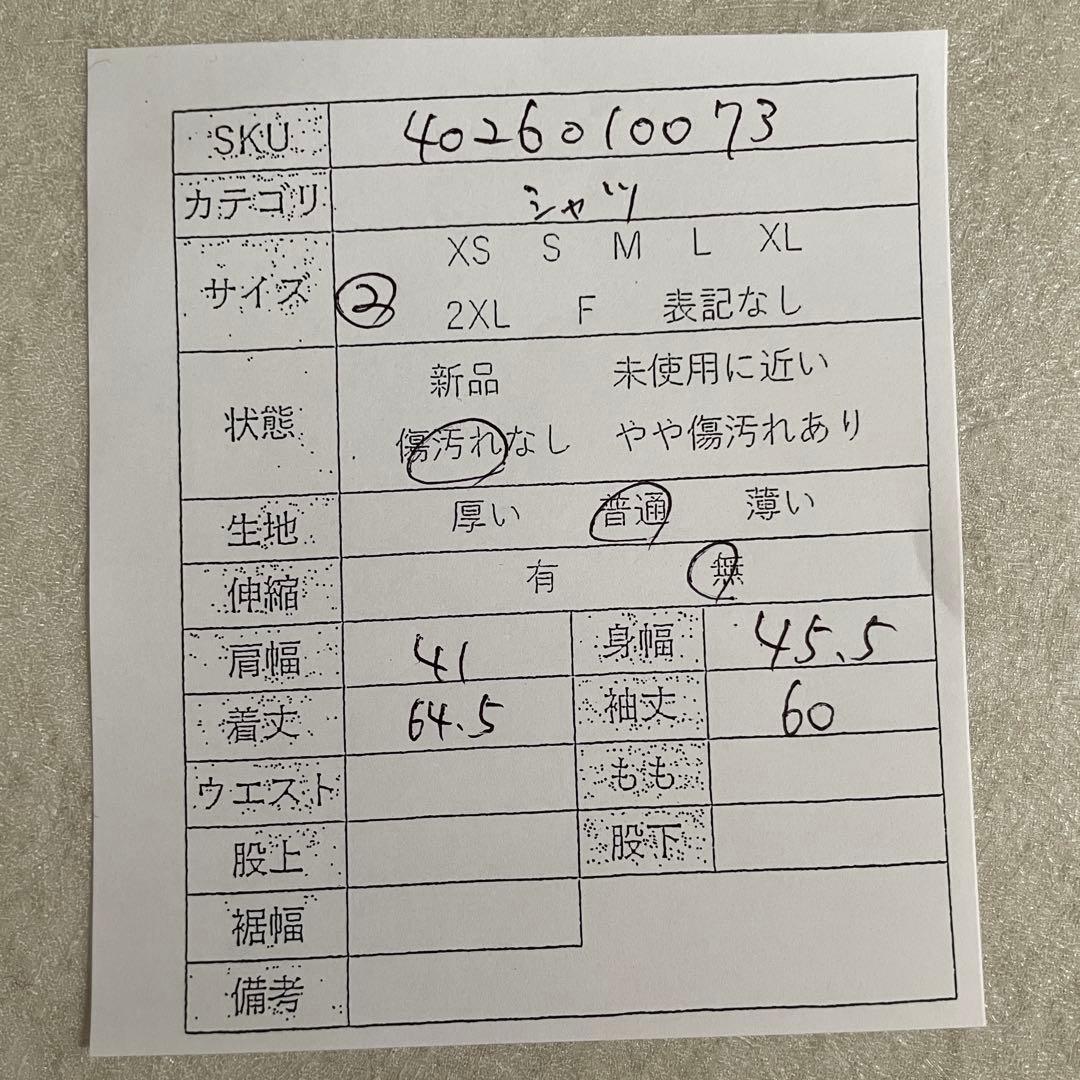 SKU 4026010073
カテゴリ シャツ
サイズ XS S M L XL
② 2XL F 表記なし
状態 新品 未使用に近い
傷汚れなし やや傷汚れあり
生地 厚い 普通 薄い
伸縮 有 無
肩幅 41 身幅 45.5
着丈 64.5 袖丈 60
ウエスト もも
股上 股下
裾幅
備考